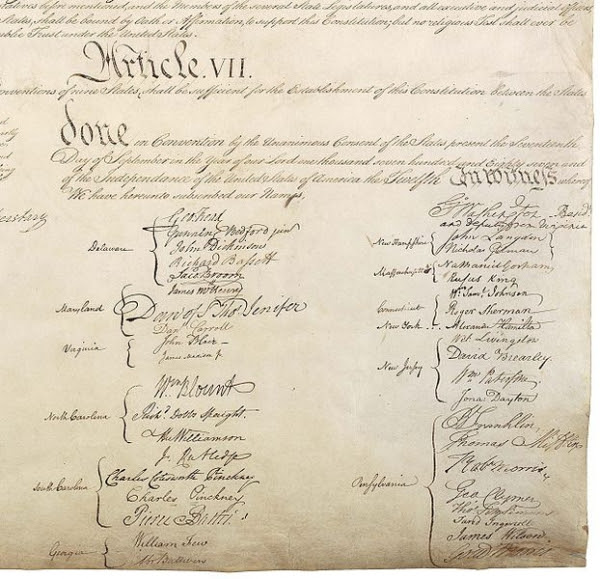 before mentioned, and the Members of the several State Legislatures, and all executive and judicial
shall be bound by Oath or Affirmation, to support this Constitution; but no religious Test shall ever be
Trust under the United States.
Article. VII.
of nine States, shall be sufficient for the Establishment of this Constitution between the States
done in Convention by the Unanimous Consent of the States present the Seventeenth
Day of September in the Year of our Lord one thousand seven hundred and Eighty seven and
of the Independance of the United States of America the Twelfth In witness whereof
We have hereunto subscribed our Names,
Delaware
Geo: Read
Gunning Bedford jun
John Dickinson
Richard Bassett
Jaco: Broom
Maryland
James McHenry
Dan of St Thos Jenifer
Danl Carroll
Virginia
John Blair—
James Madison Jr
North Carolina
Wm Blount
Richd. Dobbs Spaight.
Hu Williamson
South Carolina
J. Rutledge
Charles Cotesworth Pinckney
Charles Pinckney
Pierce Butler.
Georgia
William Few
Abr Baldwin
Go Washington
and deputy from Virginia
New Hampshire
John Langdon
Nicholas Gilman
Massachusetts
Nathaniel Gorham
Rufus King
Connecticut
Wm Saml Johnson
Roger Sherman
New York
Alexander Hamilton
New Jersey
Wil Livingston
David Brearley
Wm Paterson
Jona Dayton
Pensylvania
B Franklin
Thomas Mifflin
Robt Morris
Geo Clymer
Thos FitzSimons
Jared Ingersoll
James Wilson
Gouv Morris